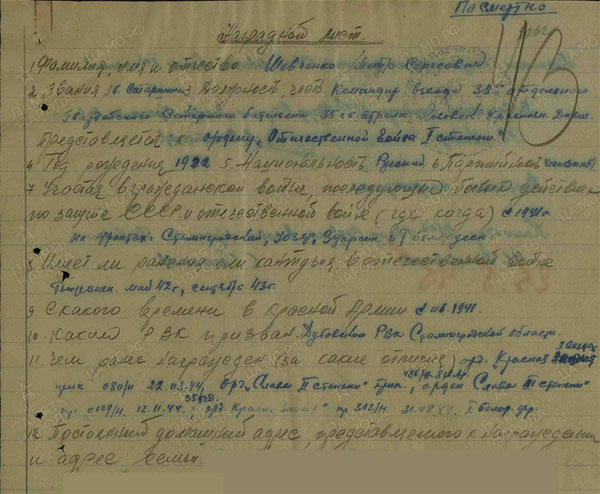 Посмертно
Наградной лист.
1. Фамилия, имя и отчество Шевченко Петр Сергеевич
2. Звание гв. Старшина 3. Должность, часть Командир взвода 38го отдельного
Гвардейского Саперного батальона 35 гв. стрелк. Лозовск. Краснозн. Дивиз.
Представляется к ордену „Отечественной Война I степени"
4. Год рождения 1922 5. Национальность Русский 6. Партийность
7. Участие в гражданской войне, последующих боевых действиях
по защите СССР и отечественной войне (где, когда) с 1941 г.
на фронтах: Сталинградский, Ю.З.Ф., 3 Украин. и I Бел. русс.
8. Имеет ли ранения или контузия в отечественной войне
май 42 г., 43 г.
9. С какого времени в Красной Армии с 1941.
10. Каким РВК призван Дубовским РВК Сталинградской области.
11. Чем ранее Награжден (за какие отличия) орд. „Красная Звезда"
прик 080/н 22.03.44, орд. „Слава II степени" прик. орден Слава III степени"
пр. 0129/н 12.11.44. орд. Красн. пр 312/н 31.08.44. I белор. фр.
12. Постоянный домашний адрес, представляемого к Награждению
и адрес семьи.